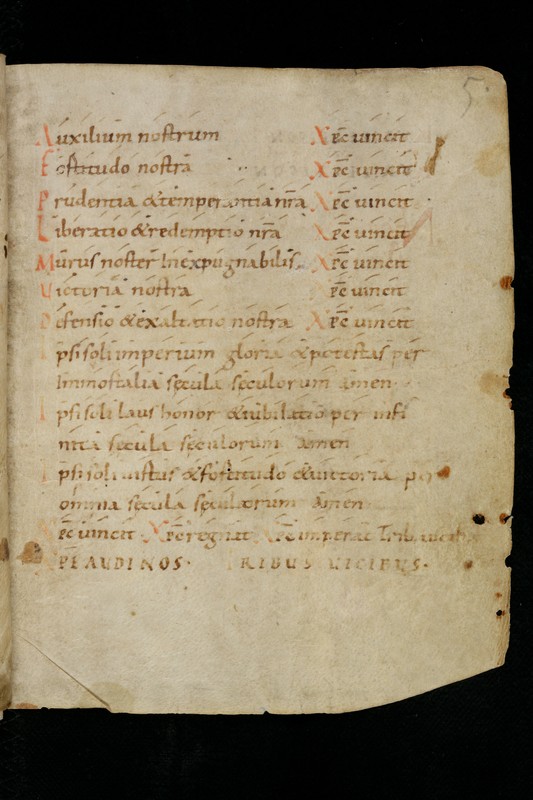 5
Auxilium nostrum Xp̄c uincit
Fortitudo nostra Xp̄c uincit
Prudentia & temperantia nr̄a Xp̄c uincit
Liberatio & redemptio nr̄a Xp̄c uincit
Murus noster Inexpugnabilis Xp̄c uincit
Uictoria nostra Xp̄c uincit
Defensio & exaltatio nostra Xp̄c uincit
Ipsi soli imperium gloria & potestas per
Immortalia secula seculorum amen
Ipsi soli laus honor & iubilatio per infi
nita secula seculorum amen
Ipsi soli uirtus & fortitudo & uictoria per
omnia secula seculorum amen
Xp̄c uincit Xp̄c regnat Xp̄c imperat Trib uicib
XPE AUDI NOS· TRIBUS UICIBUS·